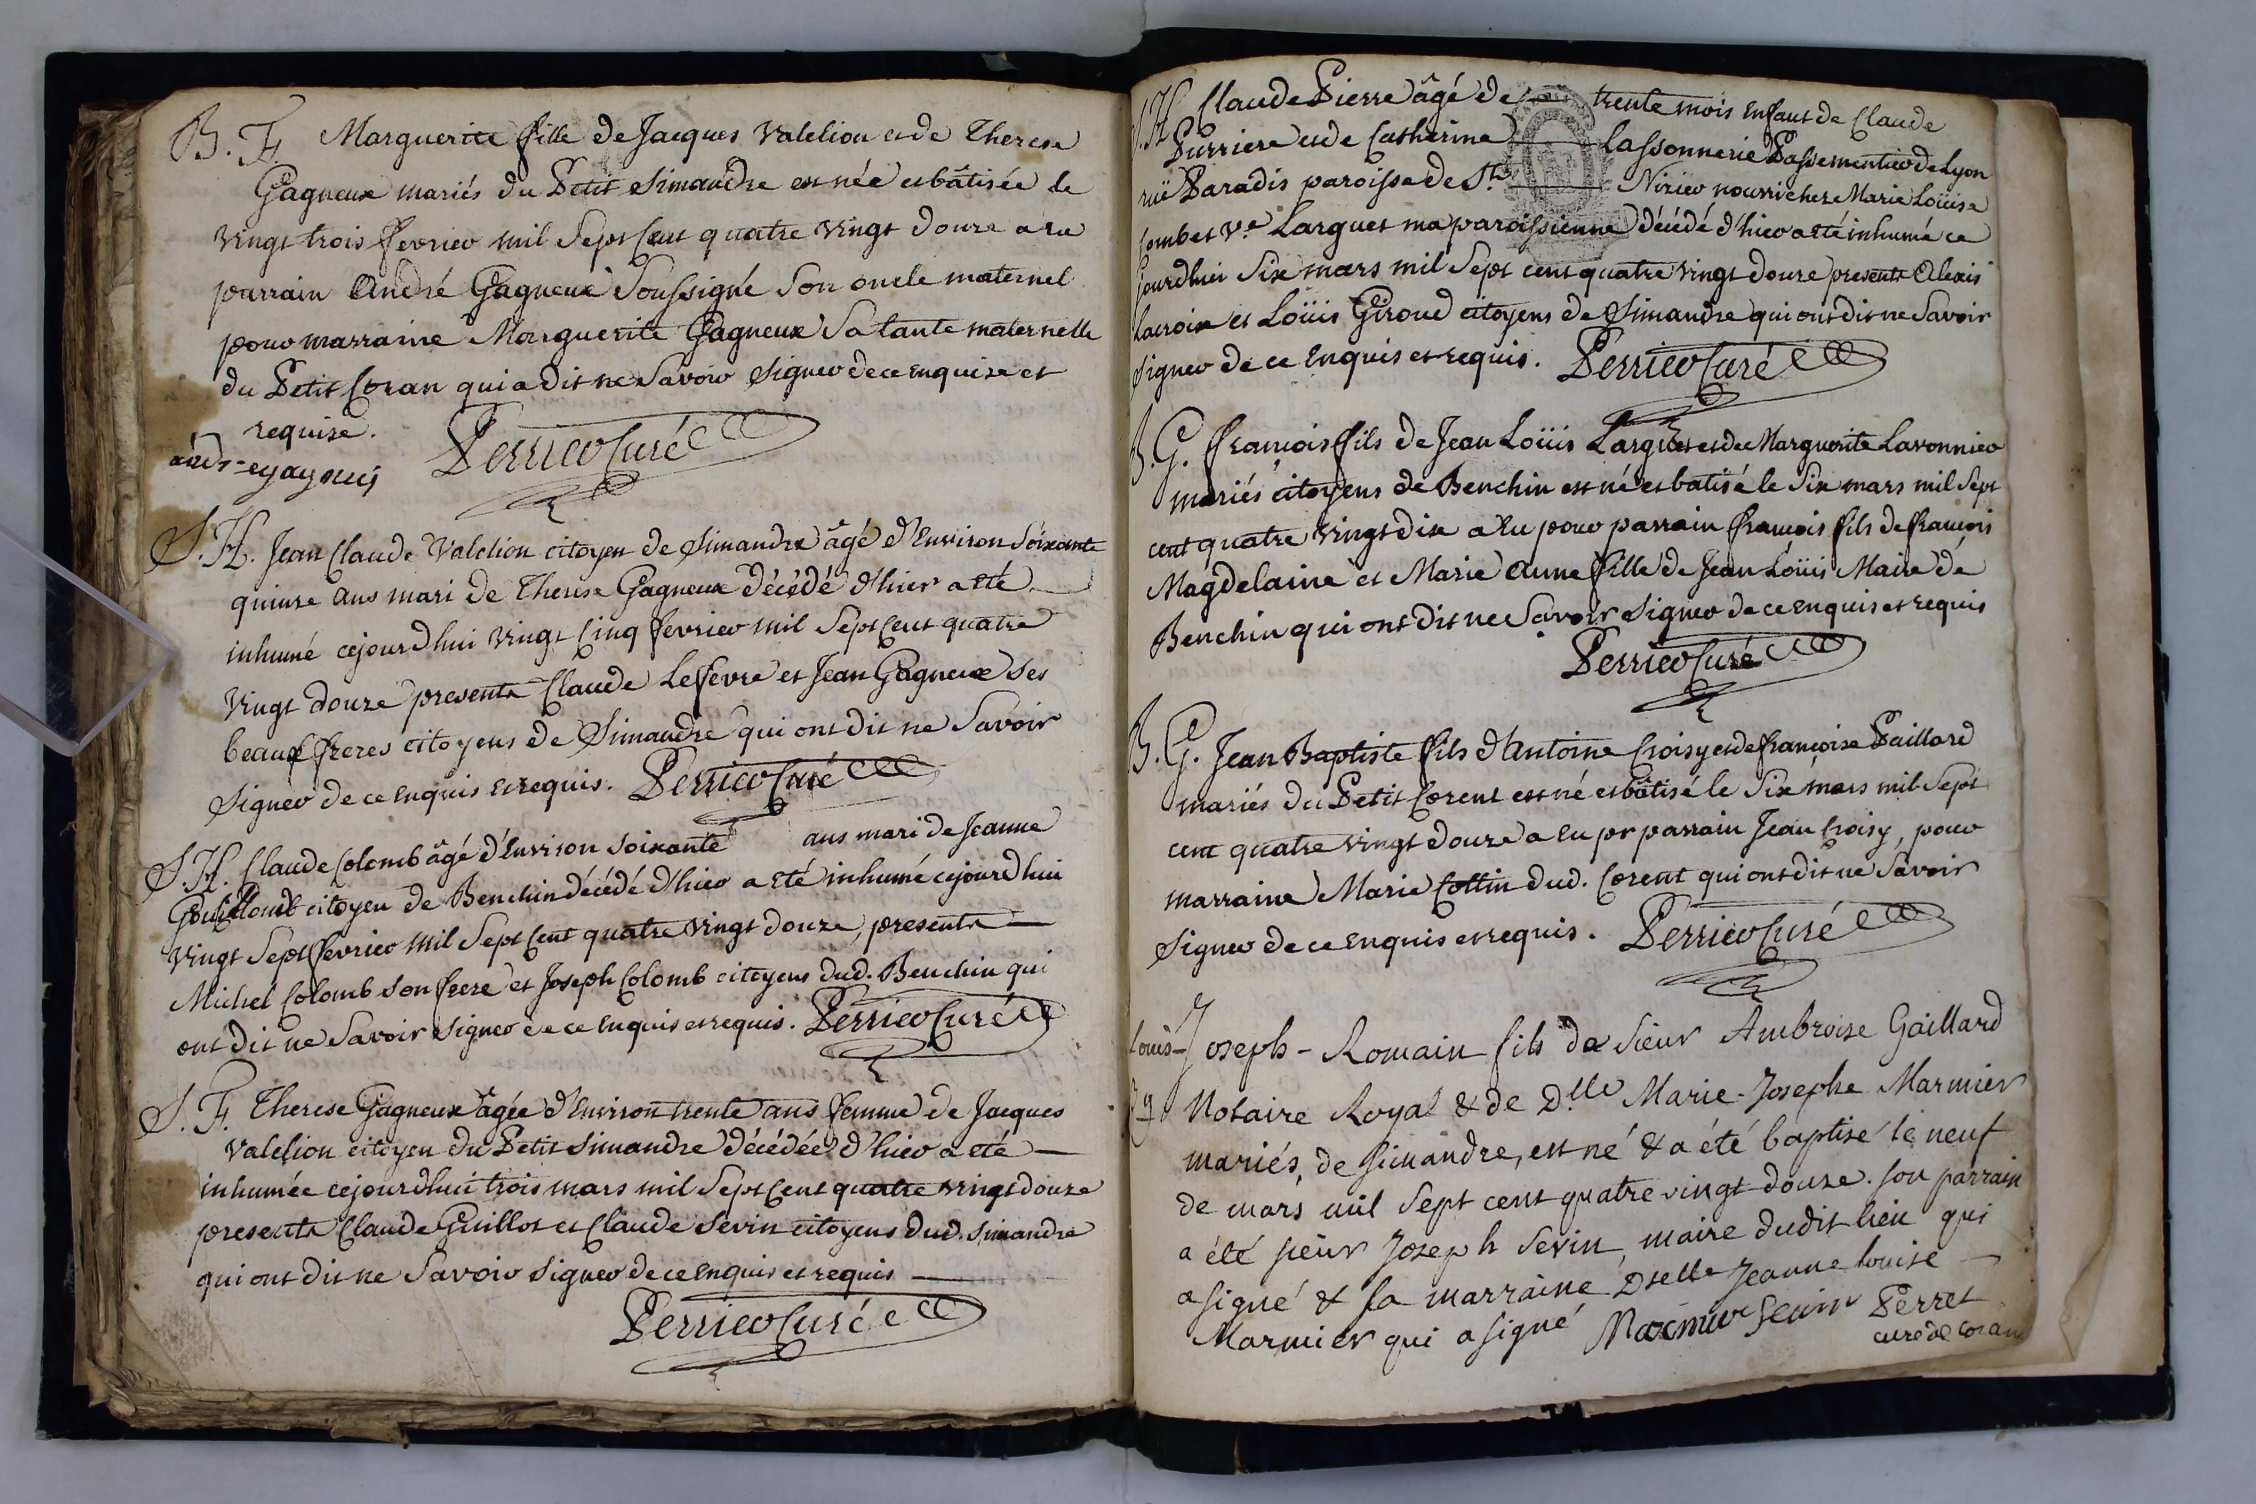 B. F. Marguerite fille de Jacques Valelion et de Therese
Gagneux mariés du Petit Simandre est née et bâtisée le
vingt trois fevrier mil Sept Cent quatre vingt douze a eu
parrain André Gagneux Soussigné Son oncle maternel
pour marraine Marguerite Gagneux Sa tante maternelle
du Petit Coran qui a dit ne Savoir Signer de ce enquise et
requise.
Perrier Curé
S. H. Jean Claude Valelion citoyen de Simandre âgé d'Environ Soixante
quinze ans mari de Therese Gagneux décédé d'hier a eté
inhumé cejourdhui vingt Cinq fevrier mil Sept Cent quatre
vingt douze presents Claude Lefevre et Jean Gagneux Ses
beaux freres citoyens de Simandre qui ont dit ne Savoir
Signer de ce enquis et requis. Perrier Curé
S. H. Claude Colomb âgé d'Environ Soixante ans mari de Jeanne
citoyen de Benchin décédé d'hier a eté inhumé cejourdhui
vingt Sept fevrier mil Sept Cent quatre vingt douze, presents
Michel Colomb Son frere et Joseph Colomb citoyens dud. Benchin qui
ont dit ne Savoir Signer de ce enquis et requis. Perrier Curé
S. F. Therese Gagneux âgée d'Environ trente ans femme de Jacques
Valelion citoyen du Petit Simandre décédée d'hier a eté
inhumée cejourdhui trois mars mil Sept Cent quatre vingt douze
presents Claude Guillot et Claude Sevin citoyens dud. Simandre
qui ont dit ne Savoir Signer de ce enquis et requis
Perrier Curé
S. H Claude Pierre âgé de trente mois Enfant de Claude
Purriere et de Catherine Lassonnerie Passementier de Lyon
rüe Paradis paroisse de St. Nizier nourri chez Marie Loüise
Combet Ve. Larguet ma paroissienne décédé d'hier a eté inhumé ce
jourdhui Six mars mil Sept cent quatre vingt douze presents Alexis
Lacroix et Loüis Giroud citoyens de Simandre qui ont dit ne Savoir
Signer de ce enquis et requis. Perrier Curé
B. G. François fils de Jean Loüis Larguet et de Marguerite Lavonnier
mariés citoyens de Benchin est né et batisé le Six mars mil Sept
cent quatre vingt dix a eu pour parrain François fils de François
Magdelaine et Marie Anne fille de Jean Loüis Maire de
Benchin qui ont dit ne Savoir Signer de ce enquis et requis
Perrier Curé
B. G. Jean Baptiste fils d'Antoine Croisy et de françoise Paillard
mariés du Petit Corent est né et bâtisé le Six mars mil Sept
cent quatre vingt douze a eu pr parrain Jean Croisy, pour
marraine Marie Cottin dud. Corent qui ont dit ne Savoir
Signer de ce enquis et requis. Perrier Curé
Louis-Joseph-Romain fils de sieur Ambroise Gaillard
Notaire Royal & de Dlle Marie-Josephe Marmier
mariés, de Simandre, est né & a été baptisé le neuf
de mars mil sept cent quatre vingt douze. son parrain
a été sieur Joseph Sevin, maire dudit lieu qui
a signé & sa marraine Dselle Jeanne Louise
Marmier qui a signé Marmier Sevin Perret
curé de Coran